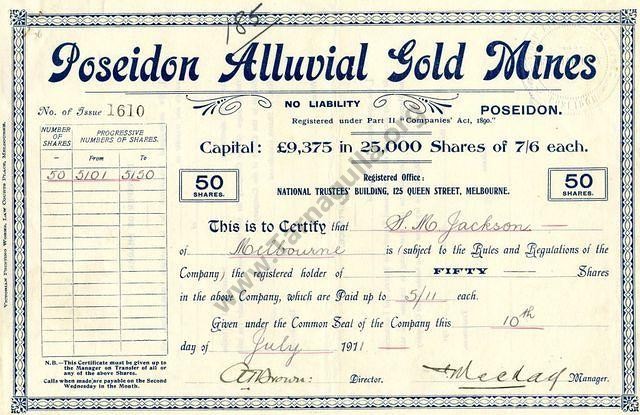 185
Poseidon Alluvial Gold Mines
No. of Issue 1610
NO LIABILITY
POSEIDON.
Registered under Part II "Companies' Act, 1890."
Capital: £9,375 in 25,000 Shares of 7/6 each.
NUMBER OF SHARES.
PROGRESSIVE NUMBERS OF SHARES.
From
To
50 5101 5150
50 SHARES.
Registered Office:
NATIONAL TRUSTEES' BUILDING, 125 QUEEN STREET, MELBOURNE.
50 SHARES.
This is to Certify that S. M. Jackson
of Melbourne is (subject to the Rules and Regulations of the
Company) the registered holder of FIFTY Shares
in the above Company, which are Paid up to 5/11 each.
Given under the Common Seal of the Company this 10th
day of July 1911
N.B.—This Certificate must be given up
to the Manager on Transfer of all or
any of the above Shares.
Calls when made are payable on the Second
Wednesday in the Month.
Brown: Director.
Manager.
VICTORIAN PRINTING WORKS, LAW COURTS PLACE, MELBOURNE.
www.tarnagulla.org